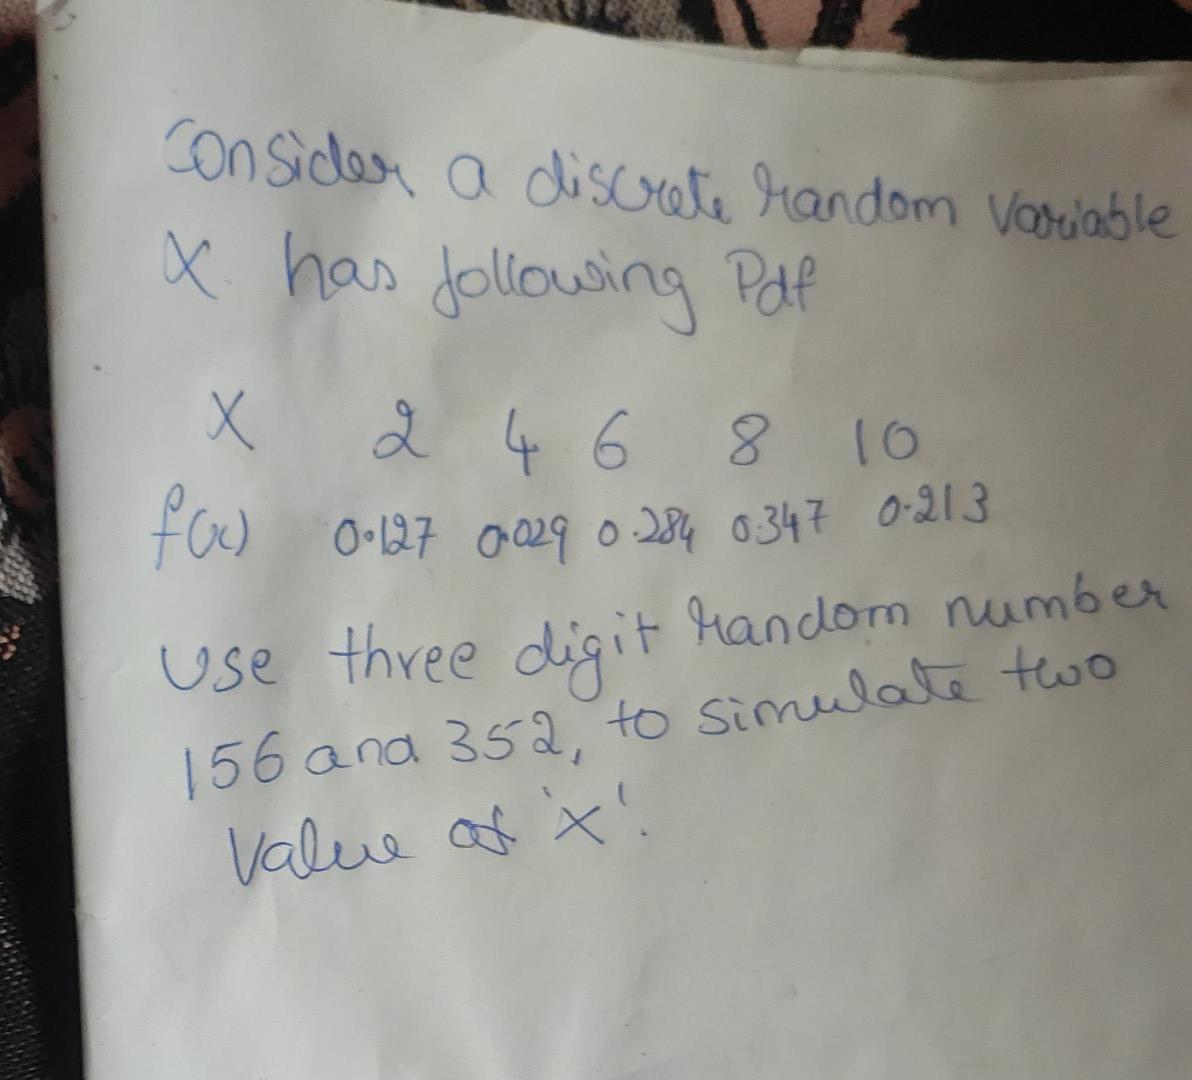 Consider a discrete random variable
X has following Pdf
X 2 4 6 8 10
f(x) 0.127 0.029 0.284 0.347 0.213
Use three digit random number
156 and 352, to simulate two
Value of 'x'.